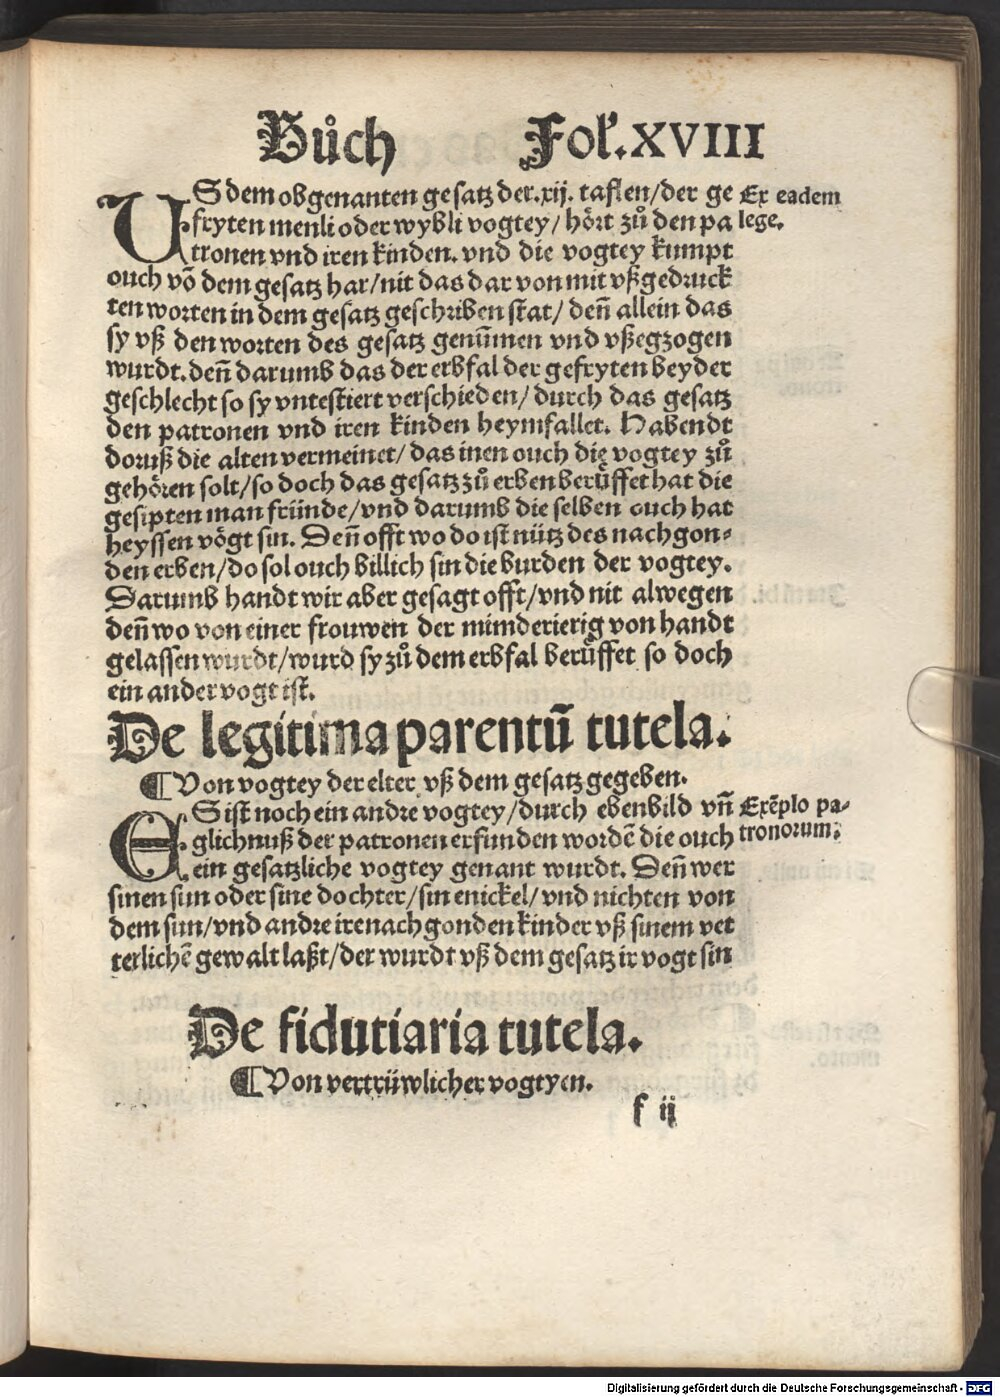 Bůch Fol'. XVIII
USdem obgenanten gesatz der .xij. taflen/der ge
fryten menli oder wybli vogtey/hört zů den pa
tronen vnd iren kinden. vnd die vogtey kumpt
ouch võ dem gesatz har/nit das dar von mit vßgedruck
ten worten in dem gesatz geschriben stat/ deñ allein das
sy vß den worten des gesatz genũmen vnd vßegzogen
wurdt. deñ darumb das der erbfal der gefryten beyder
geschlecht so sy vntestiert verschieden/ durch das gesatz
den patronen vnd iren kinden heymfallet. Habendt
doruß die alten vermeinet/das inen ouch die vogtey zů
gehören solt/so doch das gesatz zů erben berůffet hat die
gesipten man fründe/vnd darumb die selben ouch hat
heyssen vögt sin. Deñ offt wo do ist nütz des nachgon⸗
den erben/do sol ouch billich sin die burden der vogtey.
Darumb handt wir aber gesagt offt/vnd nit alwegen
deñ wo von einer frouwen der minderierig von handt
gelassen wurdt/wurd sy zů dem erbfal berůffet so doch
ein ander vogt ist.
Ex eadem
lege.
De legitima parentũ tutela.
¶Von vogtey der elter vß dem gesatz gegeben.
ES ist noch ein andre vogtey/durch ebenbild vñ
glichnuß der patronen erfunden wordẽ die ouch
ein gesatzliche vogtey genant wurdt. Deñ wer
sinen sun oder sine dochter/sin enickel/vnd nichten von
dem sun/vnd andre ire nachgonden kinder vß sinem vet
terlichẽ gewalt laßt/der wurdt vß dem gesatz ir vogt sin
Exẽplo pa⸗
tronorum.
De fidutiaria tutela.
¶Von vertrüwlicher vogtyen.
f ij
Digitalisierung gefördert durch die Deutsche Forschungsgemeinschaft - DFG